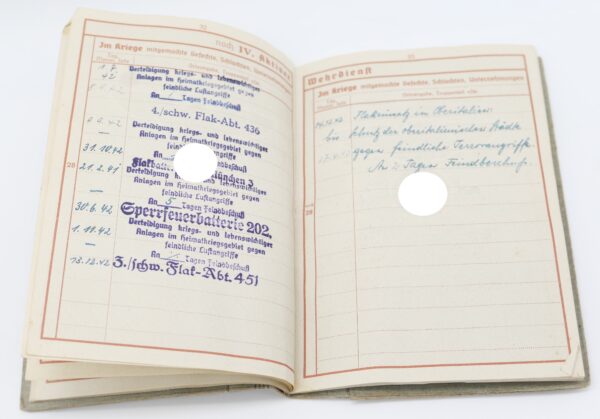 32
noch IV. Aktiver
Im Kriege mitgemachte Gefechte, Schlachten,
Tag, Monat, Jahr
Verteidigung kriegs- und lebenswichtiger
Anlagen im Heimatkriegsgebiet gegen
feindliche Luftangriffe
An Tagen Feindbeschuß
4./schw. Flak-Abt. 436
Verteidigung kriegs- und lebenswichtiger
Anlagen im Heimatkriegsgebiet gegen
feindliche Luftangriffe
31.10.42
An Tagen Feindbeschuß
28
21.2.41
Flakbatterie München 3
Verteidigung kriegs- und lebenswichtiger
Anlagen im Heimatkriegsgebiet gegen
feindliche Luftangriffe
—
An 5 Tagen Feindbeschuß
30.6.42
Sperrfeuerbatterie 202.
Verteidigung kriegs- und lebenswichtiger
1.11.42
Anlagen im Heimatkriegsgebiet gegen
—
feindliche Luftangriffe
An Tagen Feindbeschuß
13.12.42
3./schw. Flak-Abt. 451
33
Wehrdienst
Im Kriege mitgemachte Gefechte, Schlachten, Unternehmungen
Tag, Monat, Jahr
Ortsangabe, Truppenteil usw.
14.12.42
Flakeinsatz in Oberitalien
Schutz der oberitalienischen Städte
gegen feindliche Terrorangriffe.
An 2 Tagen Feindbeschuß.
28